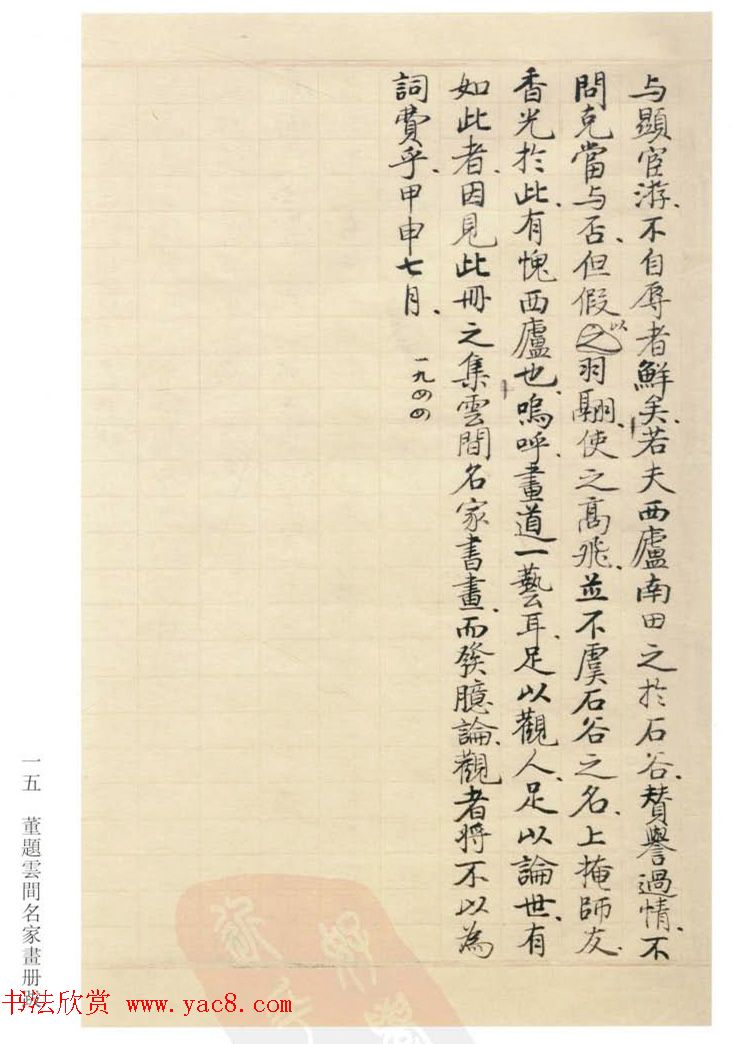 与顯宦游、不自辱者鮮矣、若夫西廬南田之於石谷、贊譽過情、不
問克當与否、但假之以羽翮、使之高飛、並不虞石谷之名、上掩師友、
香光於此、有愧西廬也、嗚呼、畫道一藝耳、足以觀人、足以論世、有
如此者、因見此冊之集雲間名家書畫、而發臆論、觀者將不以為
詞費乎、甲申七月、
一九四四
一五 董題雲間名家畫册跋
书法欣赏 www.yac8.com